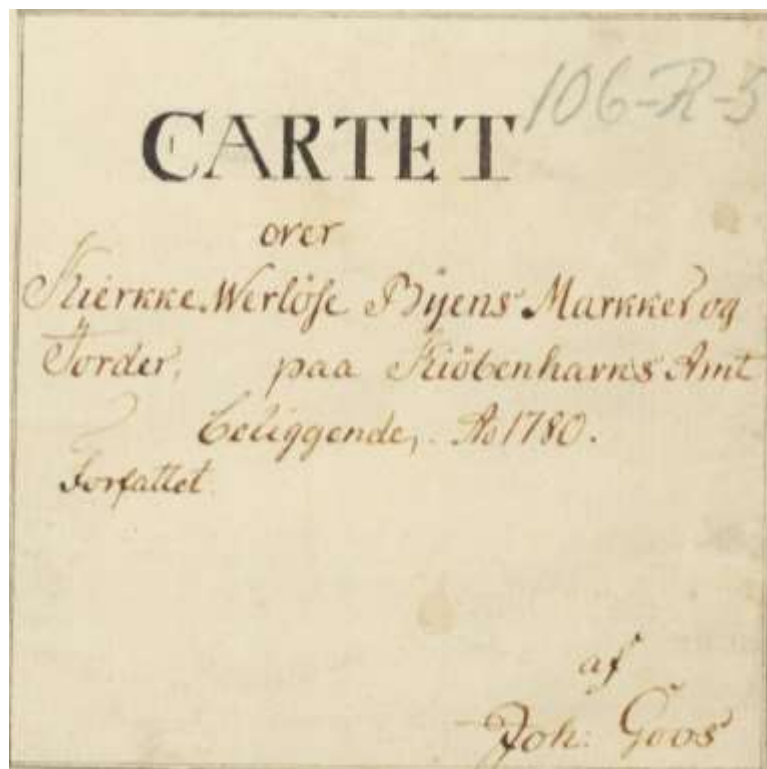 106-R-5
CARTET
over
Kierkke Werlöse Bÿens Markker og
Jorder, paa Kiöbenhavns Amt
beliggende, Ao 1780.
forfattet
af
Joh: Goos